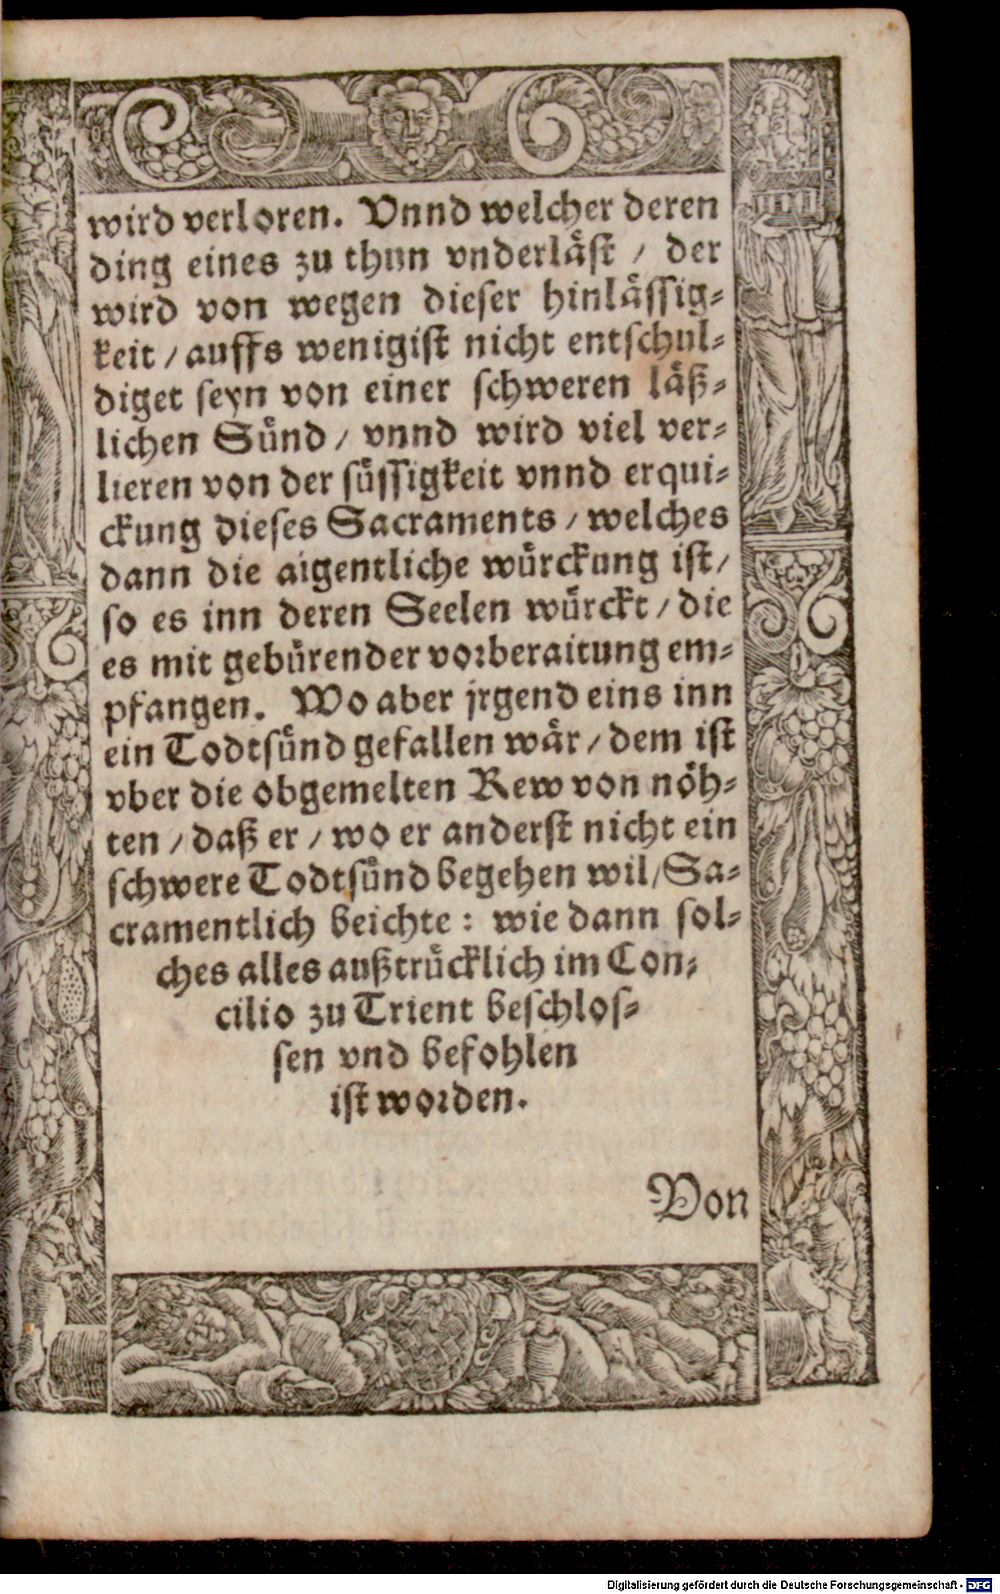 wird verloren. Vnnd welcher deren
ding eines zu thun vnderläst / der
wird von wegen dieser hinlässig-
keit / auffs wenigist nicht entschul-
diget seyn von einer schweren läß-
lichen Sünd / vnnd wird viel ver-
lieren von der süssigkeit vnnd erqui-
ckung dieses Sacraments / welches
dann die aigentliche würckung ist /
so es inn deren Seelen würckt / die
es mit gebürender vorberaitung em-
pfangen. Wo aber jrgend eins inn
ein Todtsünd gefallen wär / dem ist
vber die obgemelten Rew von nöh-
ten / daß er / wo er anderst nicht ein
schwere Todtsünd begehen wil / Sa-
cramentlich beichte : wie dann sol-
ches alles außtrücklich im Con-
cilio zu Trient beschlos-
sen vnd befohlen
ist worden.
Von
Digitalisierung gefördert durch die Deutsche Forschungsgemeinschaft - DFG